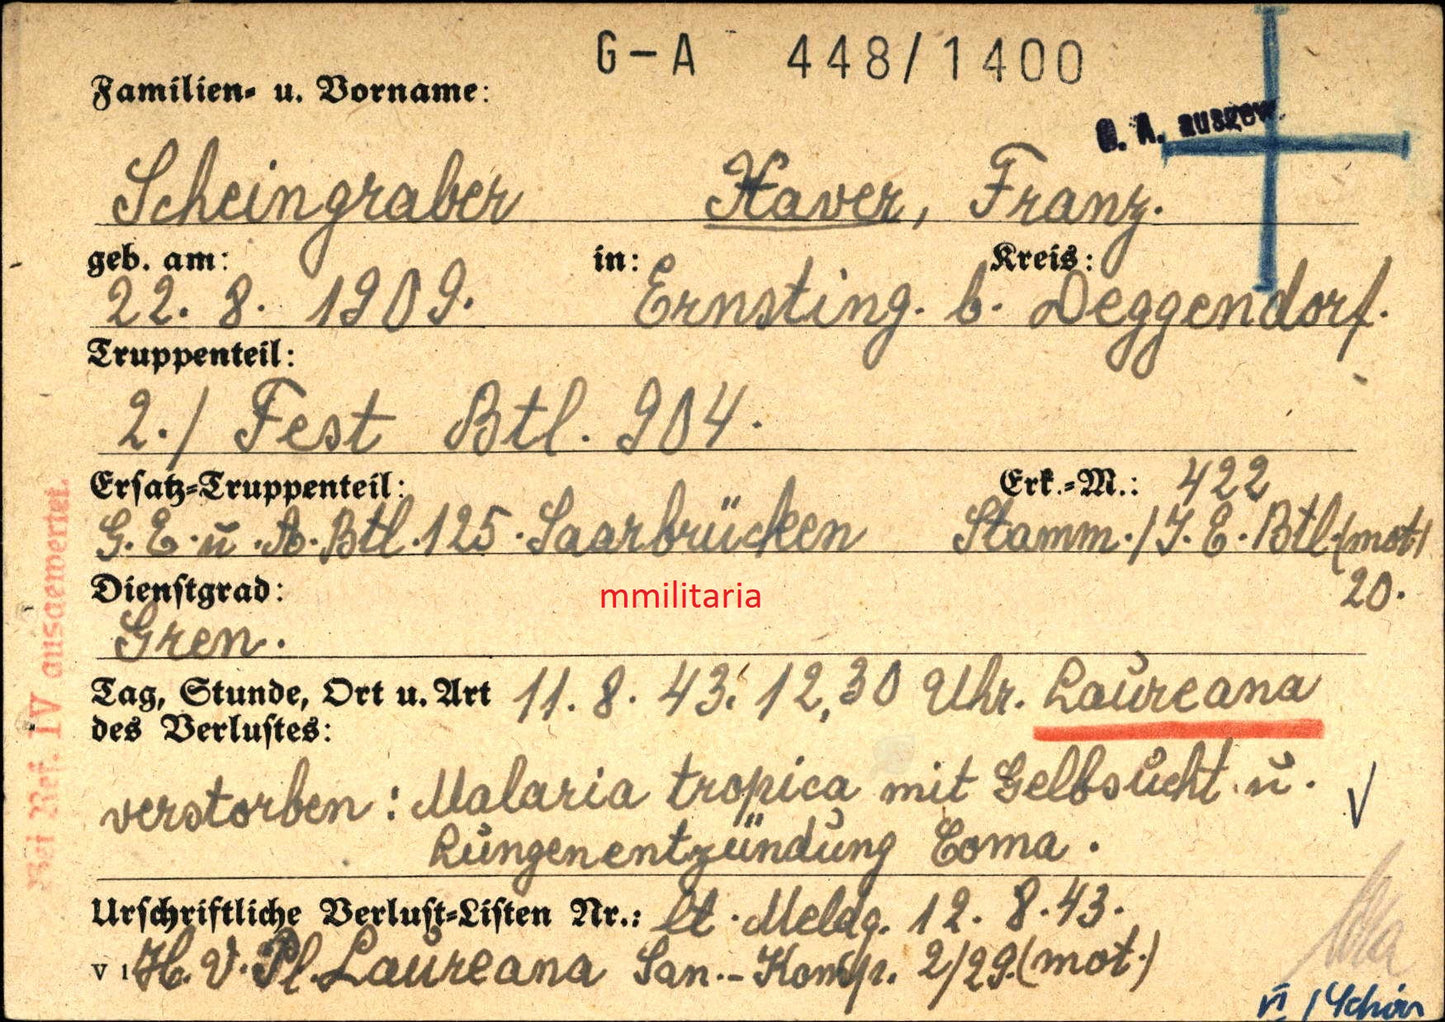 G-A 448/1400
Familien- u. Vorname:
G. A. ausgew.
Scheingraber Xaver, Franz.
geb. am: in: Kreis:
22. 8. 1909. Ernsting. b. Deggendorf.
Truppenteil:
2./ Fest Btl. 904.
Ersatz-Truppenteil: Erk.-M.: 422
G. E. u. A. Btl. 125. Saarbrücken Stamm./J. E. Btl. (mot)
20.
Dienstgrad:
mmilitaria
Gren.
Tag, Stunde, Ort u. Art 11. 8. 43. 12,30 Uhr. Laureana
des Verlustes:
verstorben: Malaria tropica mit Gelbsucht u.
Lungenentzündung Coma.
Urschriftliche Verlust-Listen Nr.: lt. Meldg. 12. 8. 43.
V 1 H. V. Pl. Laureana San.-Komp. 2/29 (mot.)
VI /
Bei Ref. IV ausgewertet.